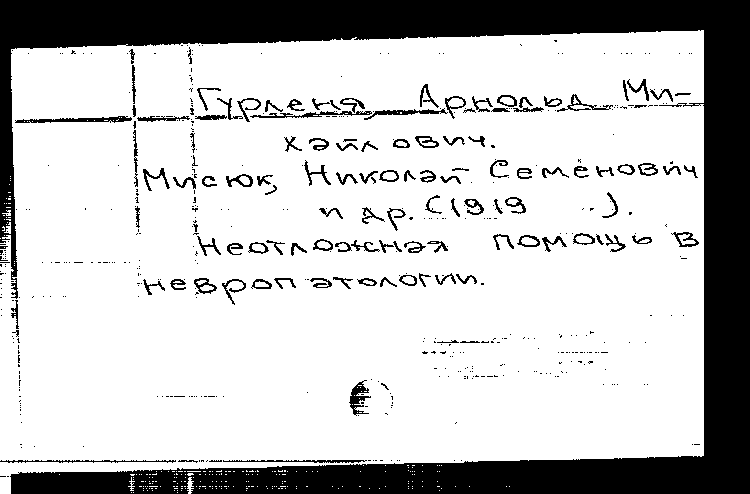 Гурленя, Арнольд Ми-
хайлович.
Мисюк, Николай Семёнович
и др. (1919 ).
Неотложная помощь в
невропатологии.